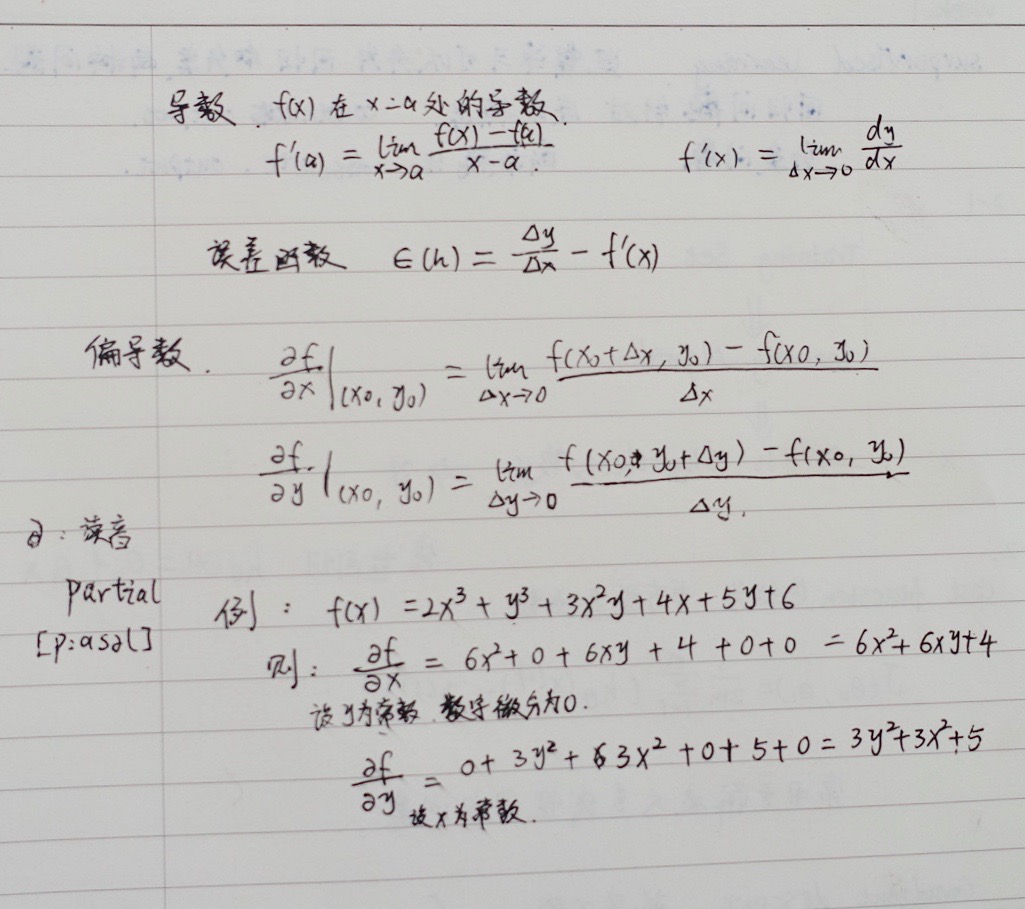 导数. f(x) 在 x=a 处的导数.
f'(a) = lim x→a (f(x) - f(a))/(x-a). f'(x) = lim Δx→0 dy/dx
误差函数 ∈(h) = Δy/Δx - f'(x)
偏导数. ∂f/∂x |(x0, y0) = lim Δx→0 (f(x0+Δx, y0) - f(x0, y0))/Δx
∂f/∂y |(x0, y0) = lim Δy→0 (f(x0, y0+Δy) - f(x0, y0))/Δy.
∂: 读音
partial
[p:aʃəl]
例: f(x) = 2x³ + y³ + 3x²y + 4x + 5y + 6
则: ∂f/∂x = 6x² + 0 + 6xy + 4 + 0 + 0 = 6x² + 6xy + 4
设y为常数. 数字微分为0.
∂f/∂y = 0 + 3y² + 3x² + 0 + 5 + 0 = 3y² + 3x² + 5
设x为常数.